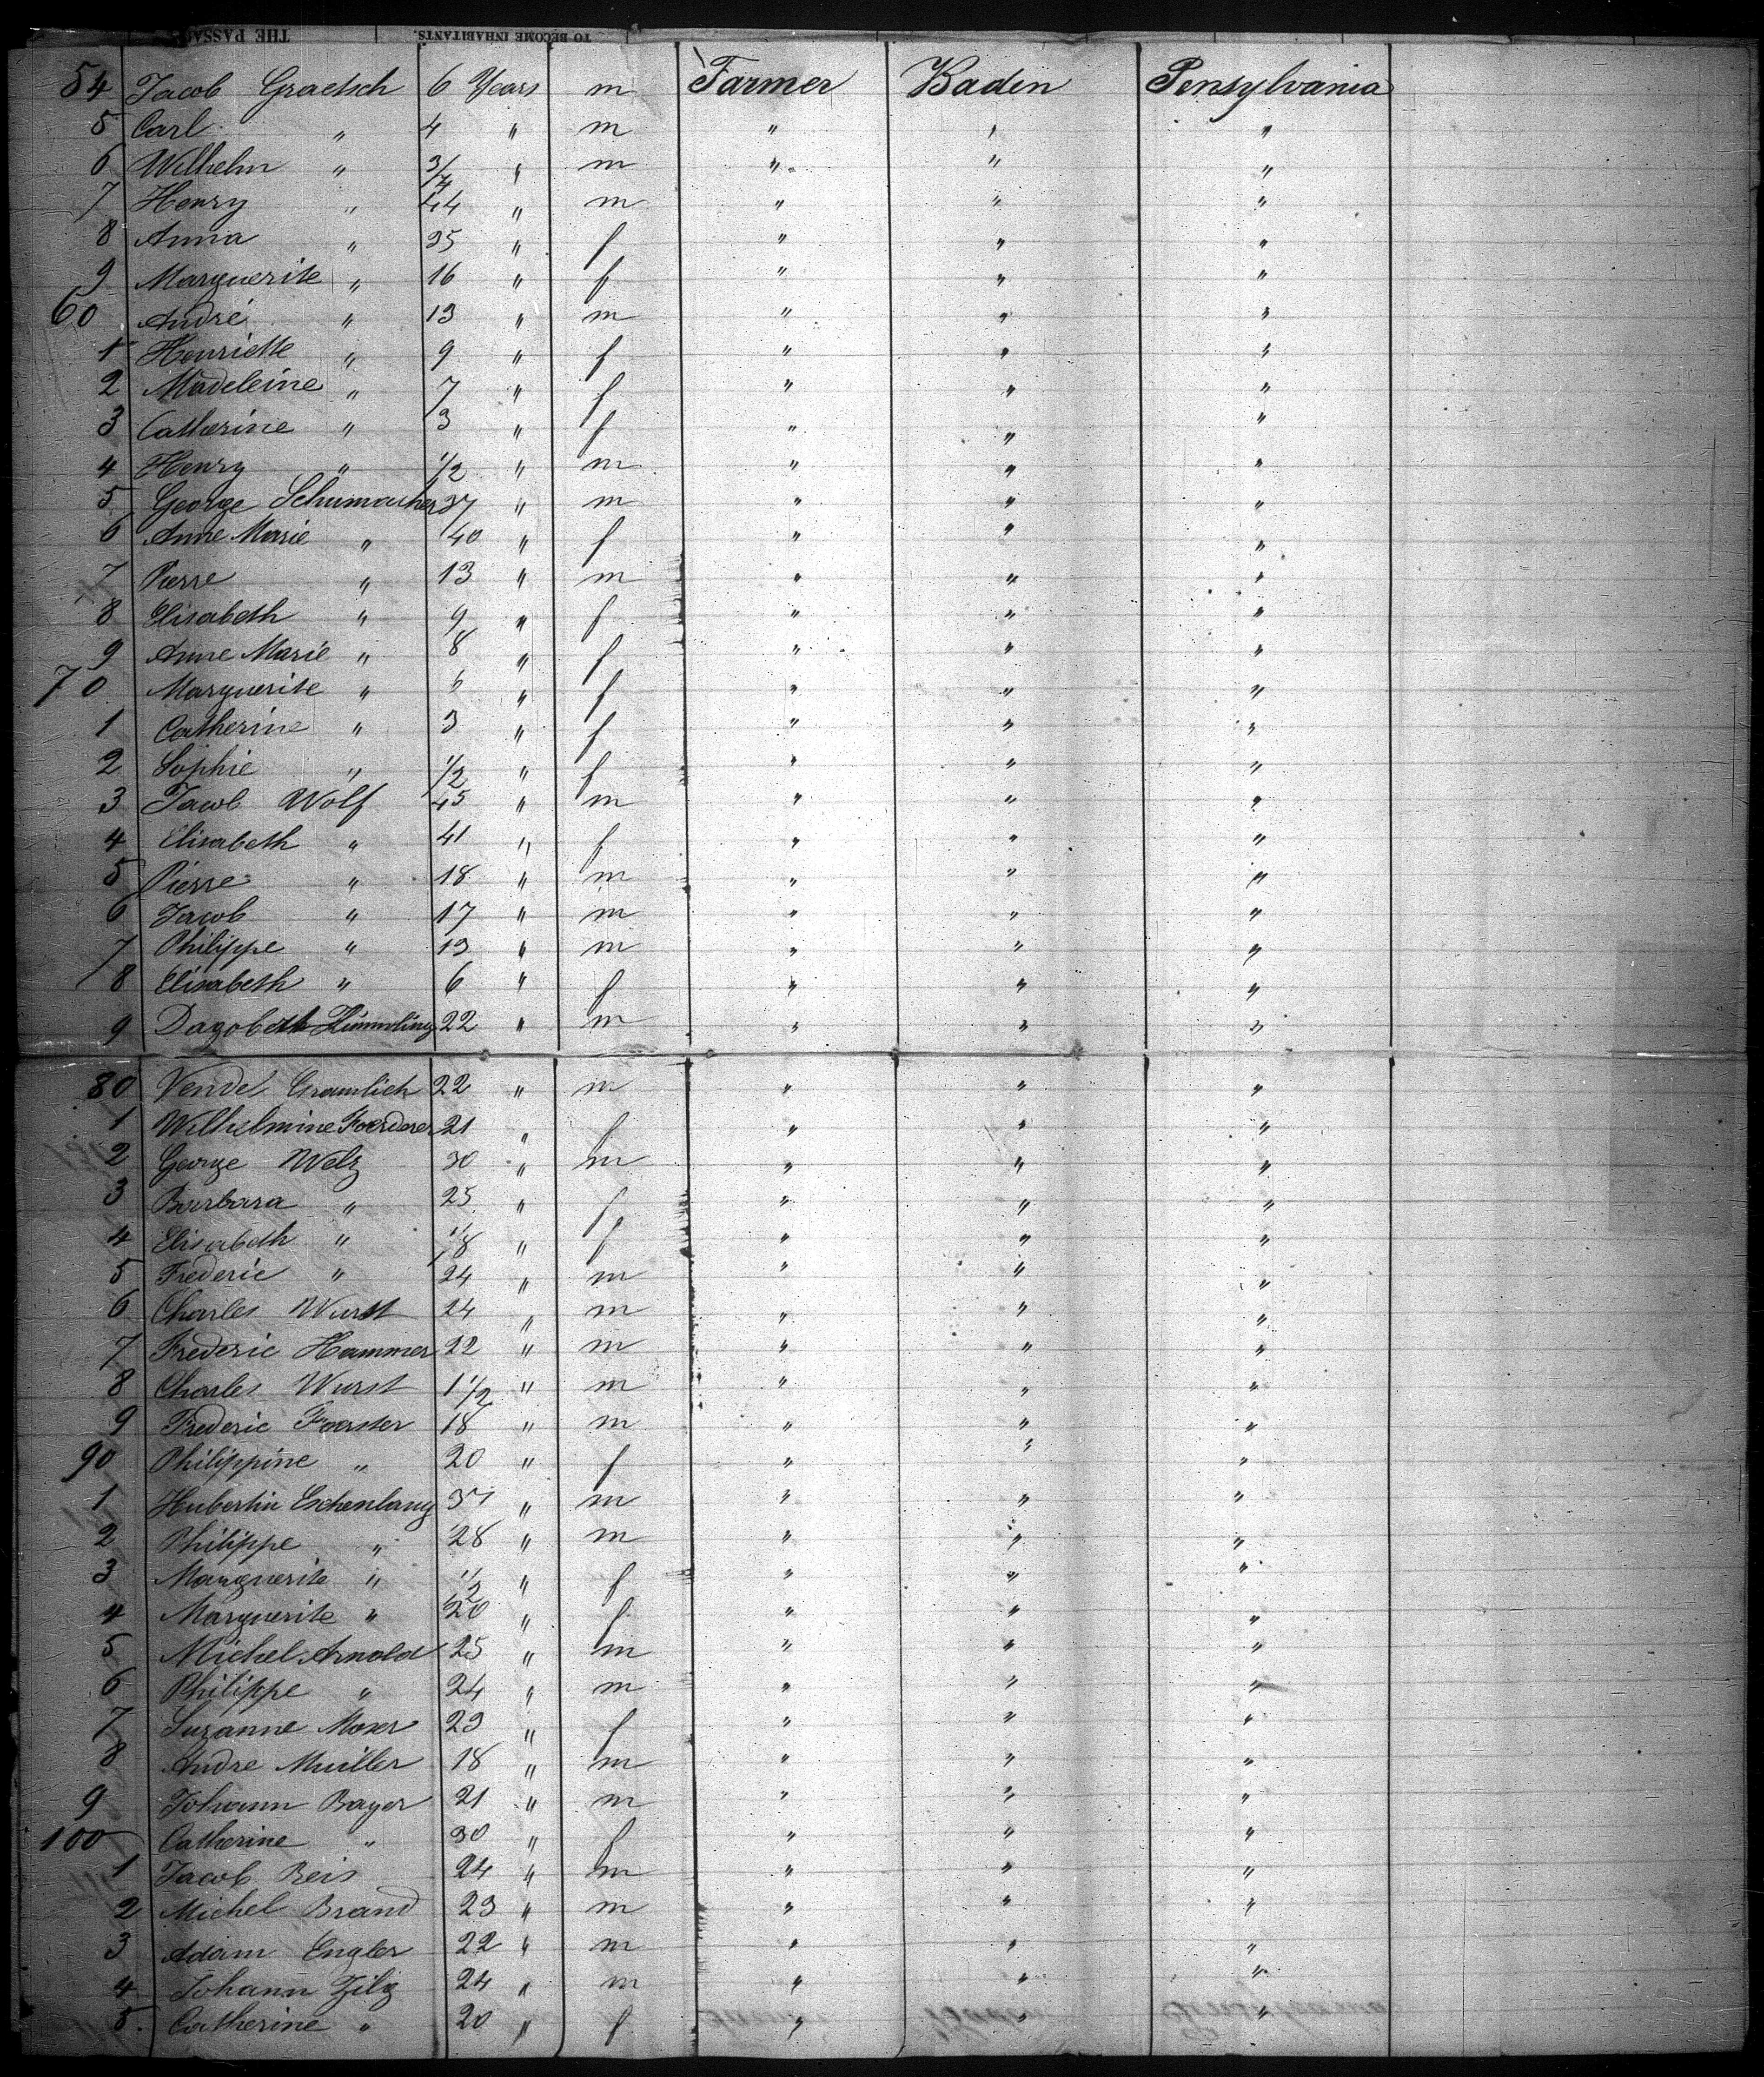 THE PASSA TO BECOME INHABITANTS.
54 Jacob Graetsch 6 Years m Farmer Baden Pensylvania
5 Carl " 4 " m " " "
6 Wilhelm " 3/4 " m " " "
7 Henry " 44 " m " " "
8 Anna " 35 " f " " "
9 Marguerite " 16 " f " " "
60 André " 13 " m " " "
1 Henriette " 9 " f " " "
2 Madeleine " 7 " f " " "
3 Catherine " 3 " f " " "
4 Henry " 1/2 " m " " "
5 George Schumacher 37 " m " " "
6 Anne Marie " 40 " f " " "
7 Pierre " 13 " m " " "
8 Elisabeth " 9 " f " " "
9 Anne Marie " 8 " f " " "
70 Marguerite " 6 " f " " "
1 Catherine " 3 " f " " "
2 Sophie " 1/2 " f " " "
3 Jacob Wolf 45 " m " " "
4 Elisabeth " 41 " f " " "
5 Pierre " 18 " m " " "
6 Jacob " 17 " m " " "
7 Philippe " 13 " m " " "
8 Elisabeth " 6 " f " " "
9 Dagobert 22 " m " " "
80 Vendel Gramlich 22 " m " " "
1 Wilhelmine Foerderer 21 " f " " "
2 George Welz 30 " m " " "
3 Barbara " 25 " f " " "
4 Elisabeth " 1/8 " f " " "
5 Frederic " 24 " m " " "
6 Charles Wurst 24 " m " " "
7 Frederic Hammer 22 " m " " "
8 Charles Wurst 1 1/2 " m " " "
9 Frederic Foerster 18 " m " " "
90 Philippine " 20 " f " " "
1 Hubertin Eschenlauy " m " " "
2 Philippe " 28 " m " " "
3 Marguerite " 1/2 " f " " "
4 Marguerite " 20 " f " " "
5 Michel Arnold 25 " m " " "
6 Philippe " 24 " m " " "
7 Suzanne Moser 23 " f " " "
8 Andre Muiller 18 " m " " "
9 Johann Bayer 21 " m " " "
100 Catherine " 30 " f " " "
1 Jacob Beis 24 " m " " "
2 Michel Brand 23 " m " " "
3 Adam Engler 22 " m " " "
4 Johann Zilg 24 " m " " "
5 Catherine " 20 " f " " "